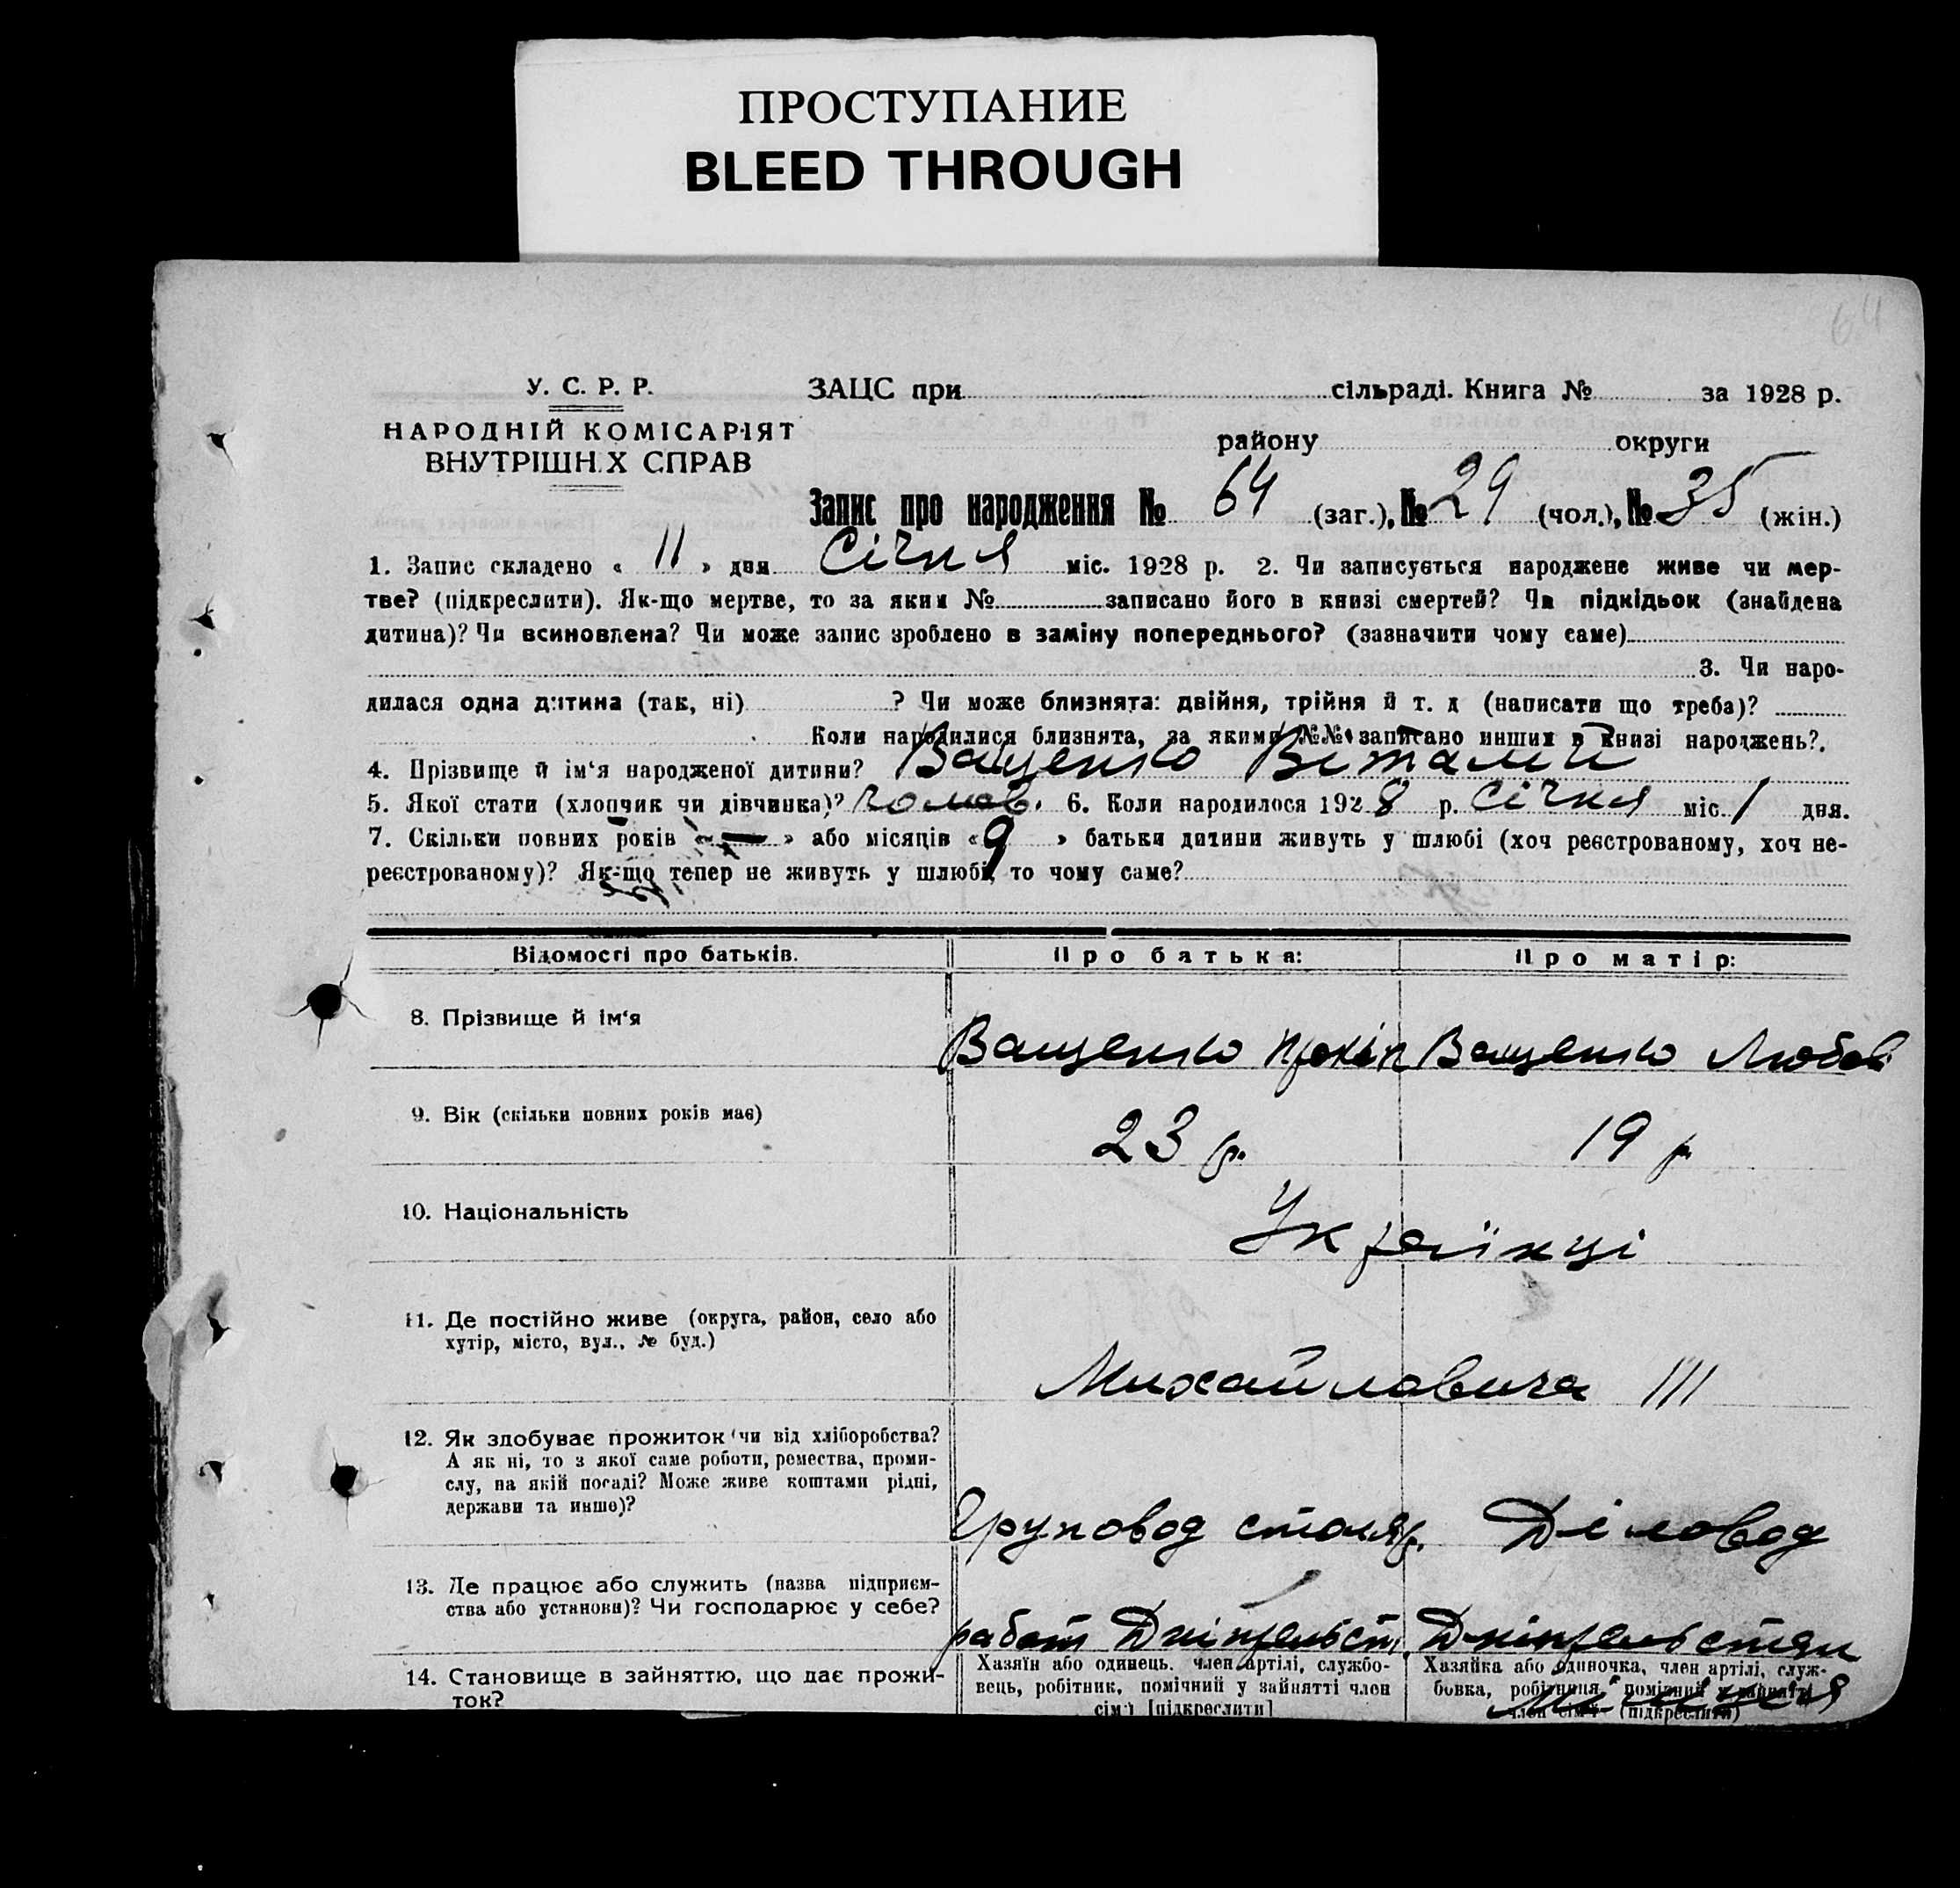 ПРОСТУПАНИЕ
BLEED THROUGH
64
У. С. Р. Р.
НАРОДНІЙ КОМІСАРІЯТ
ВНУТРІШНІХ СПРАВ
ЗАЦС при сільраді. Книга № за 1928 р.
району округи
Запис про народження № 64 (заг.), № 29 (чол.), № 35 (жін.)
1. Запис складено « 11 » дня Січня міс. 1928 р. 2. Чи записується народжене живе чи мер-
тве? (підкреслити). Як-що мертве, то за яким № записано його в книзі смертей? Чи підкідьок (знайдена
дитина)? Чи всиновлена? Чи може запис зроблено в заміну попереднього? (зазначити чому саме)
3. Чи наро-
дилася одна дитина (так, ні) ? Чи може близнята: двійня, трійня й т. д (написати що треба)?
Коли народилися близнята, за якими №№ записано инших в книзі народжень?.
4. Прізвище й ім‘я народженої дитини? Ващенко Віталий
5. Якої стати (хлопчик чи дівчинка)? чолов. 6. Коли народилося 1928 р. Січня міс. 1 дня.
7. Скільки повних років « — » або місяців « 9 » батьки дитини живуть у шлюбі (хоч реєстрованому, хоч не-
реєстрованому)? Як-що тепер не живуть у шлюбі, то чому саме?
Відомості про батьків. Про батька: Про матір:
8. Прізвище й ім‘я Ващенко Прокіп Ващенко Любов
9. Вік (скільки повних років має) 23 р. 19 р
10. Національність Українці
11. Де постійно живе (округа, район, село або
хутір, місто, вул., № буд.)
Михайловича
12. Як здобуває прожиток (чи від хліборобства?
А як ні, то з якої саме роботи, ремества, проми-
слу, на якій посаді? Може живе коштами рідні,
держави та инше)?
Груповод столяр. Діловод
13. Де працює або служить (назва підприєм-
ства або установи)? Чи господарює у себе?
работ Дніпрельст,
14. Становище в зайняттю, що дає прожи-
ток?
Хазяїн або одинець. член артілі, службо-
вець, робітник, помічний у зайнятті член
сім‘ї [підкреслити]
Хазяйка або одиночка, член артілі, служ-
бовка, робітниця, помічний у зайнятті
член сім‘ї (підкреслити)